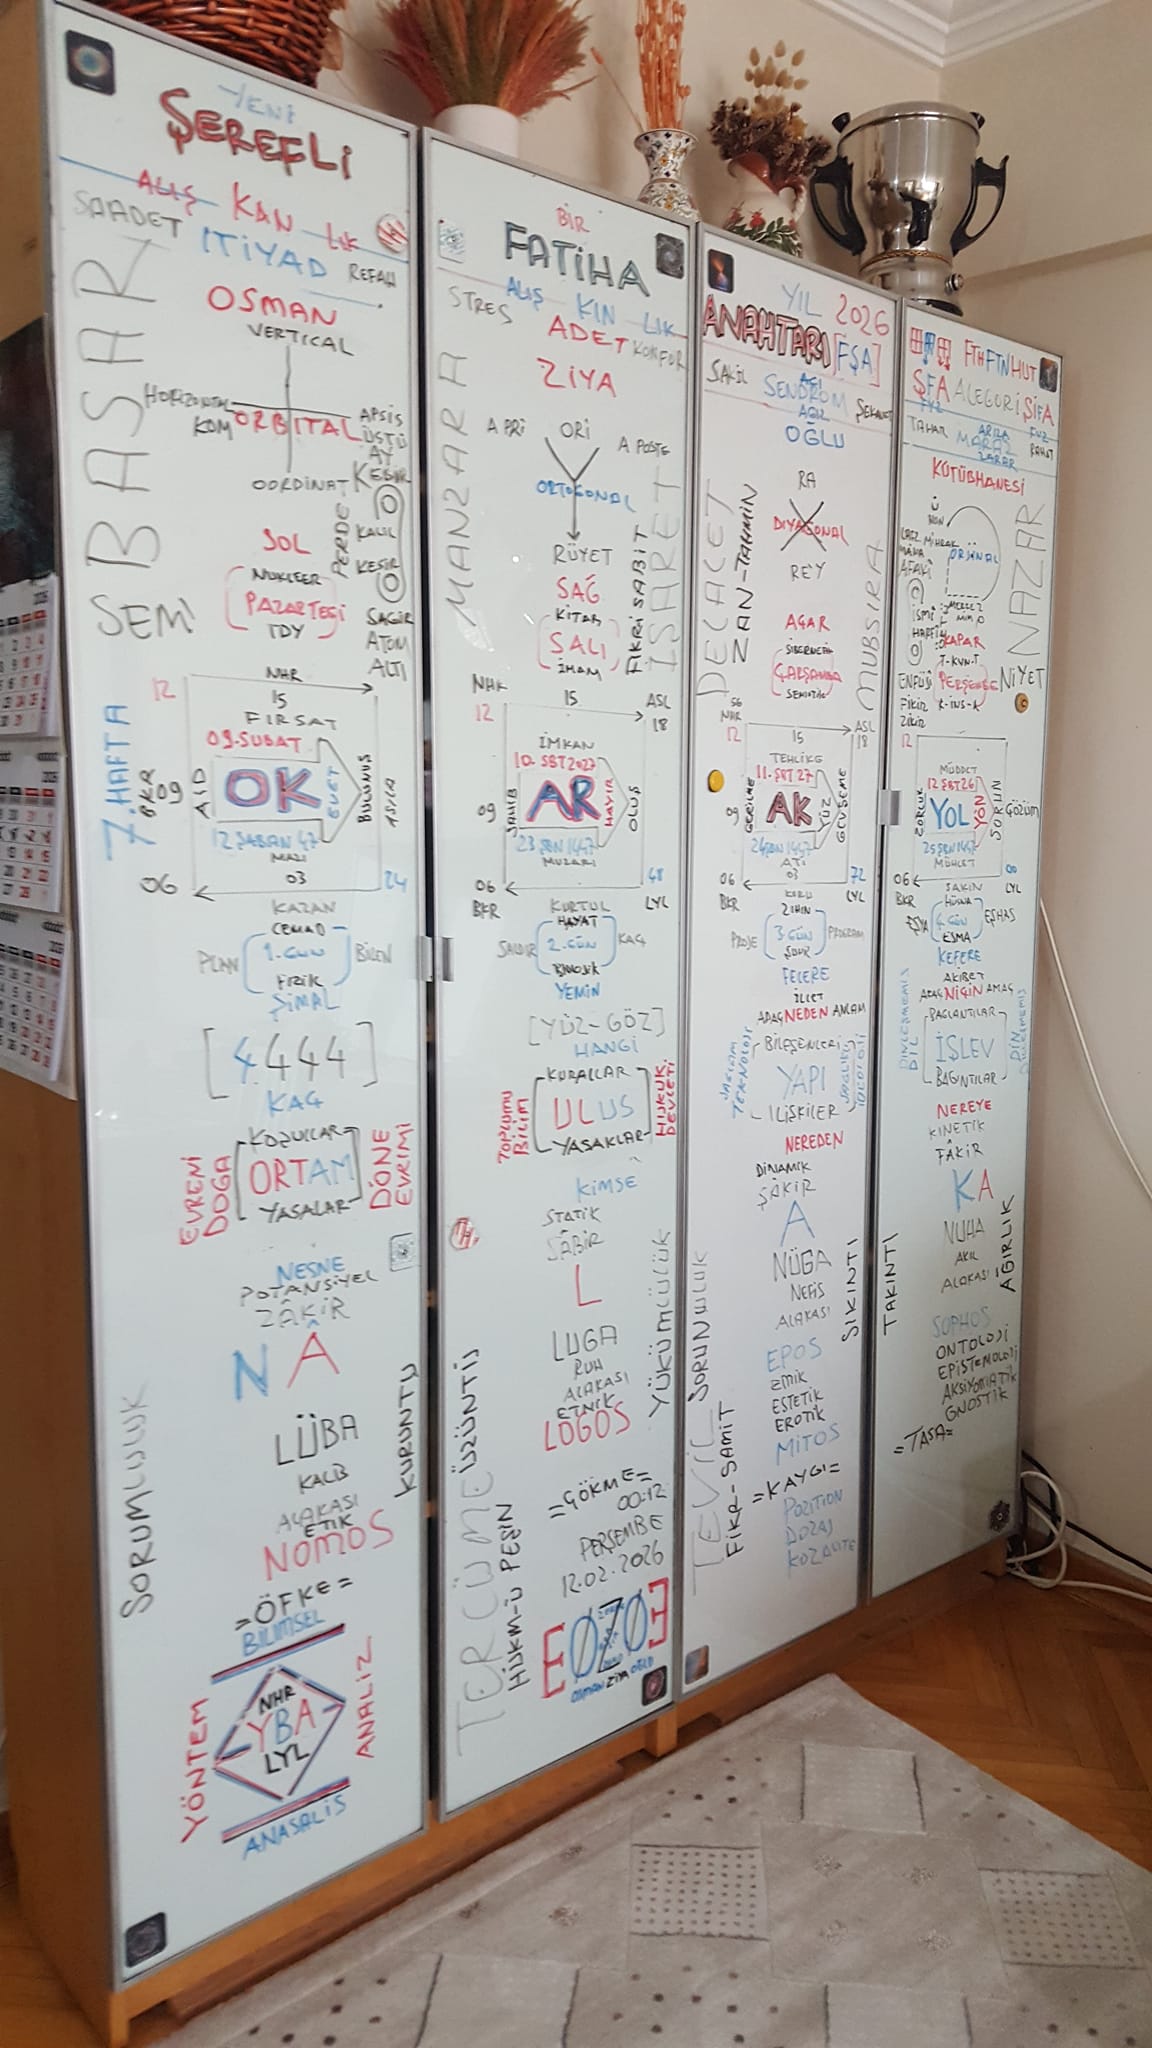 YENİ
ŞEREFLİ
ALIŞ KAN LIK
SAADET İTİYAD REFAH
OSMAN
VERTICAL
HORIZONTAL
ORBITAL
APSİS
ÜSTÜ
AY
KESİR
KALIL
KESİR
PERDE
SAĞIR
ATOM
ALTI
BASAR
SEMİ
SOL
NUKLEER
PAZARTESİ
TDY
7. HAFTA
12
NHR
15
FIRSAT
09. SUBAT
BKR
09
AID
OK
EVET
BULUNUŞ
12 ŞABAN 47
MAZİ
06
03
24
KAZAN
CEMAD
PLAN
1. GÜN
BİLEN
FİZİK
ŞİMAL
[4444]
KAÇ
EVRENİ
DOĞA
KOŞULLAR
ORTAM
YASALAR
DÖNE
EVRİMİ
NESNE
POTANSİYEL
ZÂKİR
NÂ
LÜBA
KALB
ALAKASI
ETİK
NOMOS
=ÖFKE=
SORUMLULUK
KURUNTU
BİLİMSEL
YÖNTEM
NHR
YBA
LYL
ANALİZ
ANASALIS
BİR
FATİHA
ALIŞ KIN LIK
STRES ADET KONFOR
ZİYA
A PRİ
ORİ
A POSTE
ORTOGONAL
RÜYET
MANZARA
İŞARET
FİKRİ SABİT
SAĞ
KİTAB
SALI
İMAM
NHR
12
15
ASL
18
İMKAN
10. ŞBT 2027
09
SAHİB
AR
HAYIR
OLUŞ
23 ŞBN 1447
MUZARİ
06
BKR
48
LYL
KURTUL
HAYAT
SALDIR
2. GÜN
KAÇ
BİYOLOJİK
YEMİN
[YÜZ-GÖZ]
HANGİ
TOPLUMU
BİLİM
KURALLAR
ULUS
YASAKLAR
HUKUK
DEVLETİ
KİMSE
STATİK
SÂBİR
L
LUGA
RUH
ALAKASI
ETNİK
LOGOS
YÜKÜMLÜLÜK
ÜZÜNTÜ
TERCÜME
HÜKM-Ü PEŞİN
=GÖKME=
00:12
PERŞEMBE
12.02.2026
OSMAN ZİYA OĞLU
YIL 2026
ANAHTARI [FŞA]
ŞAKİL
ACI
SENDROM
AĞIZ
OĞLU
RA
DIYAGONAL
REY
DELALET
ZAN-TAHMİN
MUBSIRA
AĞAR
SİBERNETİK
ÇARŞAMBA
SEMİOTİK
NHR
12
15
ASL
18
TEHLİKE
11. ŞBT 27
09
GERİLME
AK
YÜZ
GEVŞEME
24 ŞBN 1447
ATİ
06
03
72
BKR
LYL
KORU
ZİHİN
PROJE
3. GÜN
PROGRAM
ŞUUR
FECERE
İLLET
ADAĞ NEDEN ANLAM
BİLEŞENLERİ
YAPI
İLİŞKİLER
TEKNOLOJİ
İDEOLOJİ
NEREDEN
DİNAMİK
ŞÂKİR
A
NÜGA
NEFİS
ALAKASI
EPOS
EMİK
ESTETİK
EROTİK
MİTOS
=KAYGI=
POZITION
DOZAJ
KOZALİTE
SORUNLULUK
SIKINTI
TEVİL
FİKR-SAMİT
FTH FTN HUT
ŞFA ALEGORİ ŞİFA
MARAZ
ZARAR
RAHAT
KÜTÜBHANESİ
ORJİNAL
NAZAR
NİYET
AFAKİ
İSMİ
HARFİ
KAPAR
PERŞENBE
ENFÜSİ
FİKİR
ZİKİR
12
MÜDDET
12 ŞBT 26
ZORUK
YOL
YÖN
SORUN
ÇÖZÜM
25 ŞBN 1447
MÜHLET
06
BKR
LYL
SAKİN
EŞYA
4. GÜN
EŞHAS
ESMA
KEFERE
AKİBET
NİÇİN AMAÇ
BAĞLANTILAR
İŞLEV
BAĞINTILAR
NEREYE
KİNETİK
FÂKİR
KA
NUHA
AKIL
ALAKASI
AĞIRLIK
TAKINTI
SOPHOS
ONTOLOJİ
EPİSTEMOLOJİ
AKSİYOMATİK
GNOSTİK
=TASA=